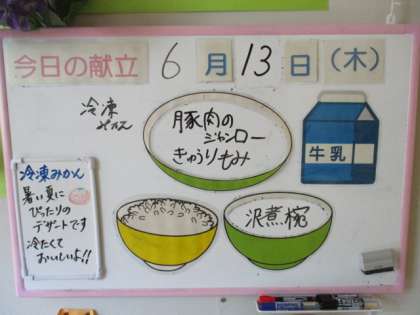 今日の献立 6月13日(木)
冷凍
みかん
豚肉の
ジャンロー
きゅうりもみ
牛乳
冷凍みかん
暑い夏に
ぴったりの
デザートです
冷たくて
おいしいよ!!
沢煮椀